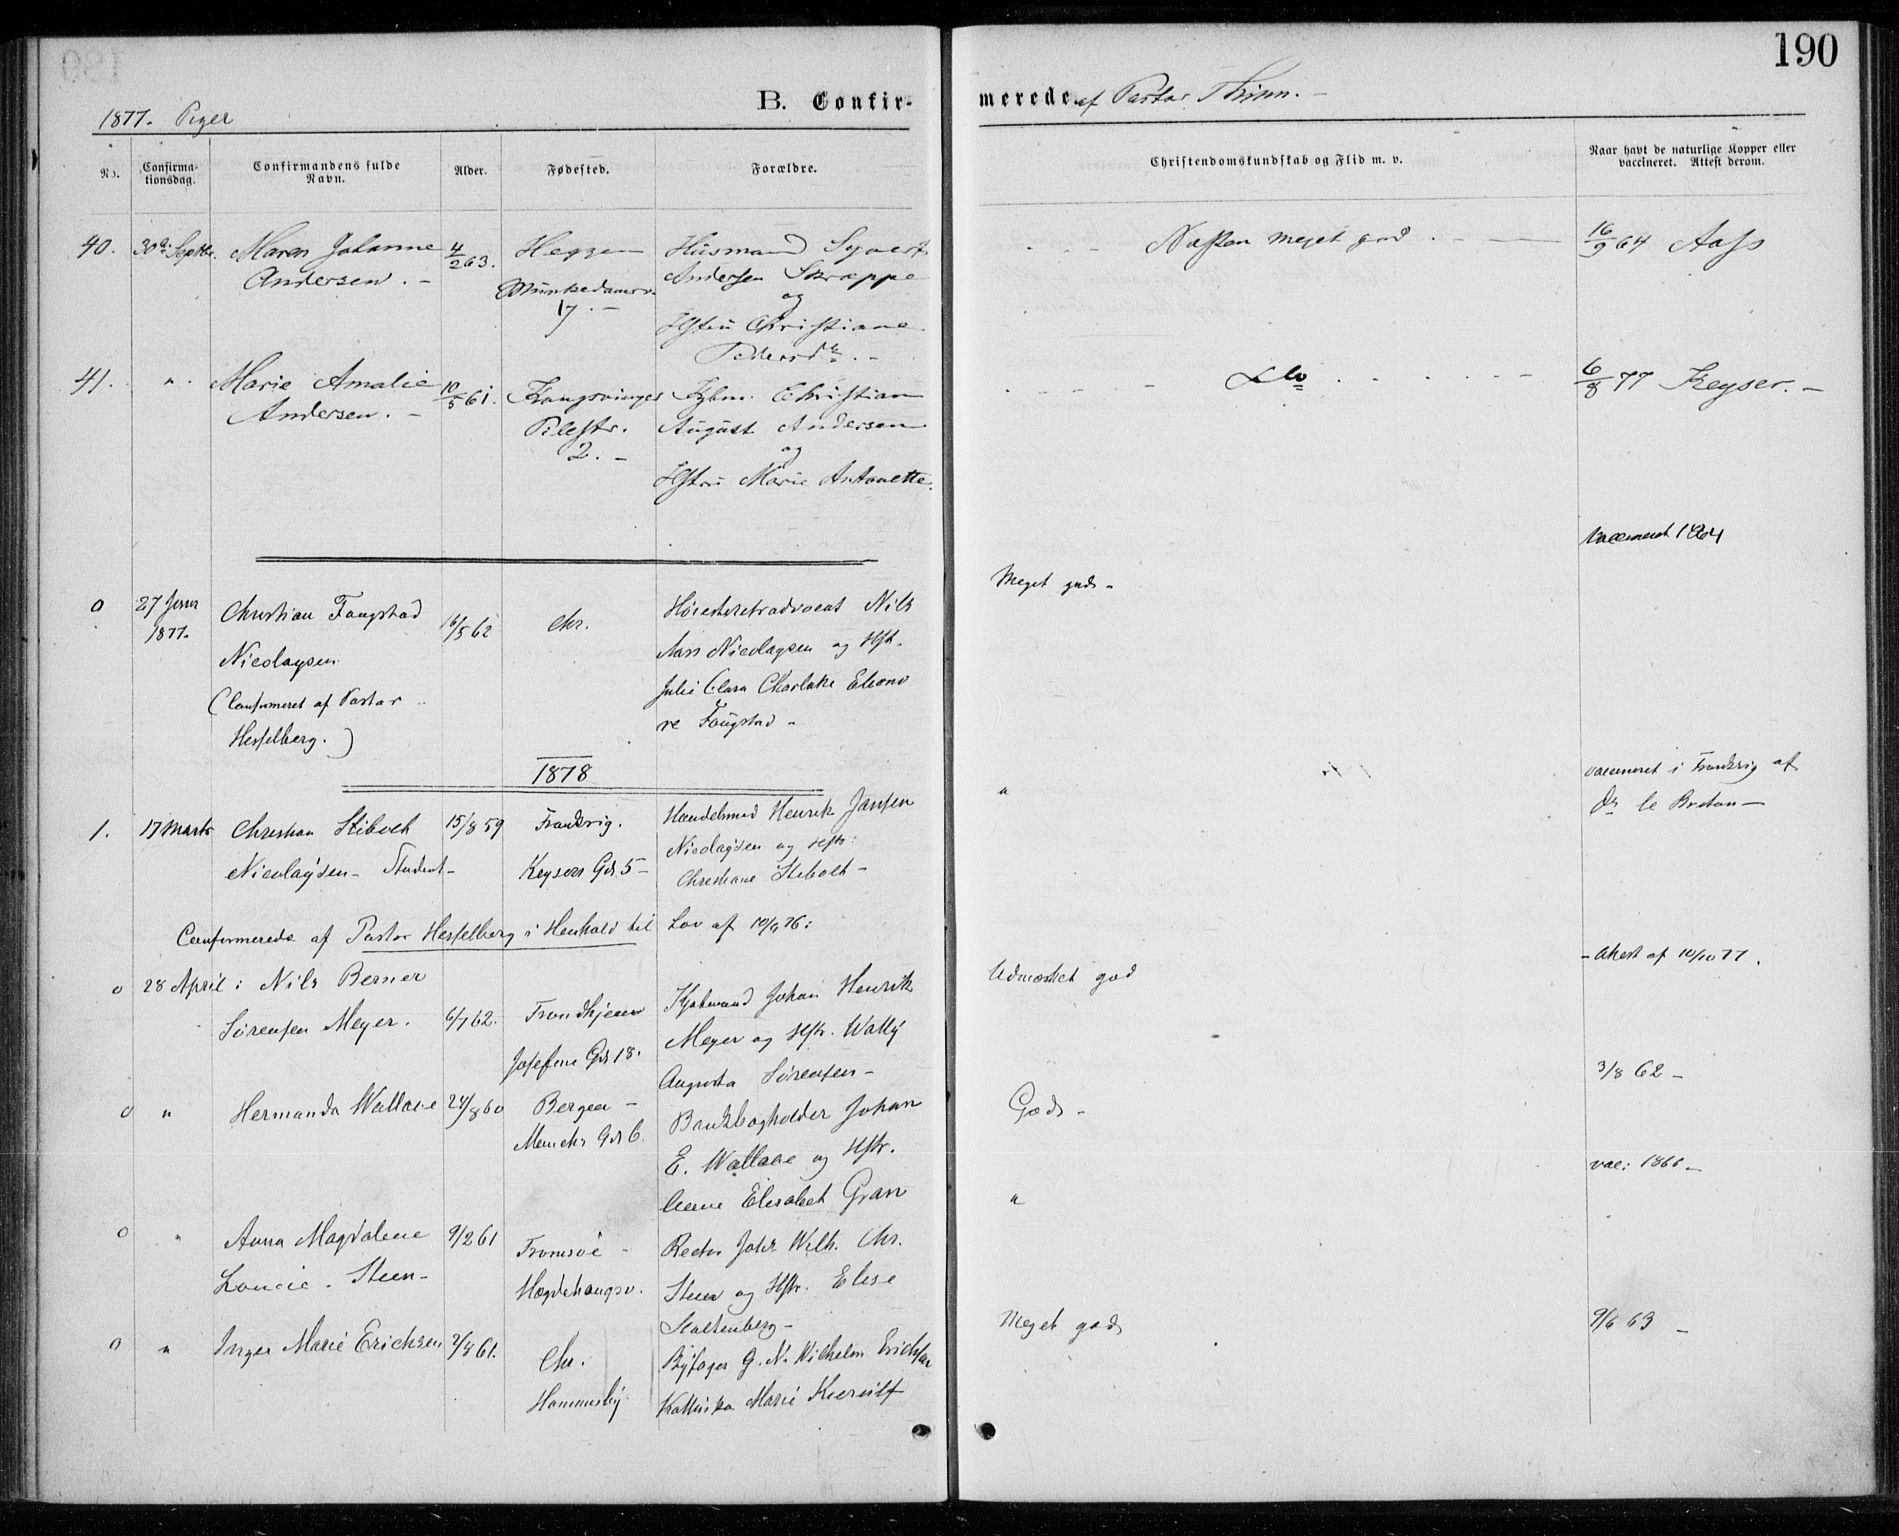 190
1877. Piger
B. Confirmerede af Pastor Thinn.
No.
Confirmationsdag.
Confirmandens fulde Navn.
Alder.
Fødested.
Forældre.
Christendomskundskab og Flid m. v.
Naar havt de naturlige Kopper eller vaccineret. Attest derom.
40. 30te Septbr. Maren Johanne 4/2 63. Heggen Husmand Syvert Næsten meget god 16/9 64 Aass
Andersen. Munkedamsv. Andersen Skræppe
17. og
Hstru Christiane
Pedersdtr.
41. " Marie Amalie 10/5 61. Kongsvinger Kjbm. Christian Do 6/8 77 Keyser.
Andersen. Pilestr. August Andersen
2. og
Hstru Marie Antonette.
Vaccineret 1864
0 27 1877. Christian Fougstad 16/5 62 Chr. Høiesteretsadvocat Nils Meget god
Nicolaysen Aars Nicolaysen og Hst.
(Confirmeret af Pastor Julie Clara Charlotte Eleono
Hesselberg.) re Fougstad
1878
1. 17 Marts Christian Stibolt 15/8 59 Frankrig. Handelsmd Henrik Jansen " vaccineret i Frankrig af
Nicolaysen Student Keysers Gd. 5 Nicolaysen og Hstr. Dr. le Breton
Christiane Stibolt
Confirmerede af Pastor Hesselberg i Henhold til Lov af 76:
0 28 April: Nils Berner Udmærket god Attest af 10/10 77.
Sørensen Meyer. 6/7 62. Trondhjem Kjøbmand Johan Henrik
Josefine Gd. 18. Meyer og Hstr. Wally
Augusta Sørensen
0 " Hermanda Wallace 24/8 60 Bergen Bankbogholder Johan God 3/8 62
Munchs Gd. 6. E. Wallace og Hstr.
Elisabet Gran
0 " Anna Magdalene 9/2 61 Tromsøe Rector Johs Wilh. Chr. " vac: 1866
Louise Steen Hægdehaugsv. Steen og Hstr. Elise
Stoltenberg
0 " Inger Marie Erichsen 2/8 61. Chr. Byfoged G. N. Wilhelm Erichsen Meget god 9/6 63
Hammersby Kathinka Marie Kierulf